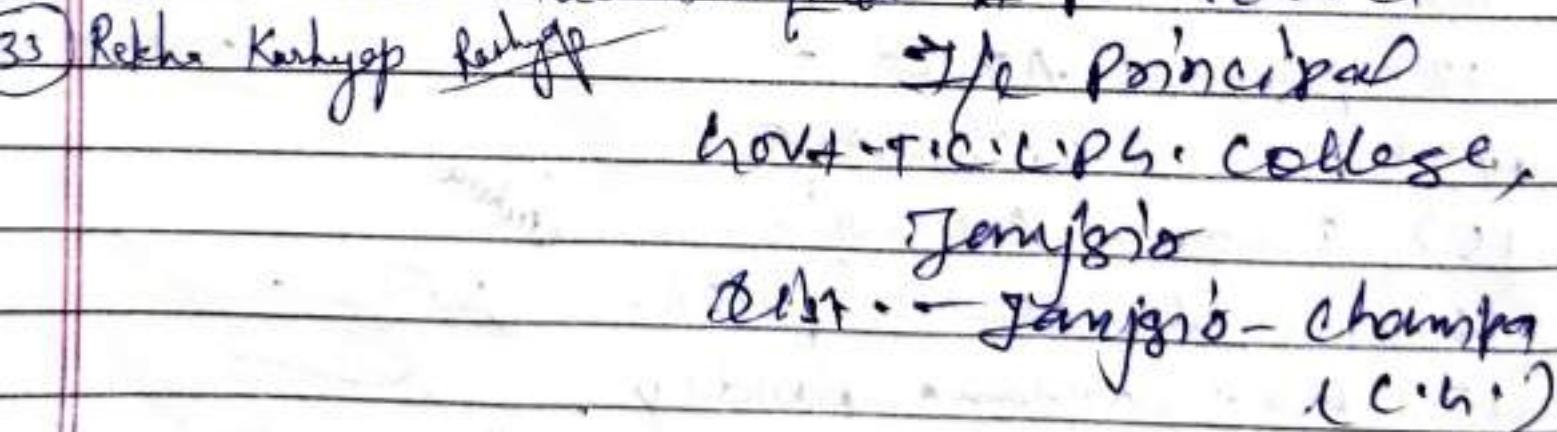 33 Rekha Kashyap Kashyap
I/c Principal
Govt. T.C.L. P.G. College,
Janjgir
Dist. - Janjgir - Champa
(C.G.)